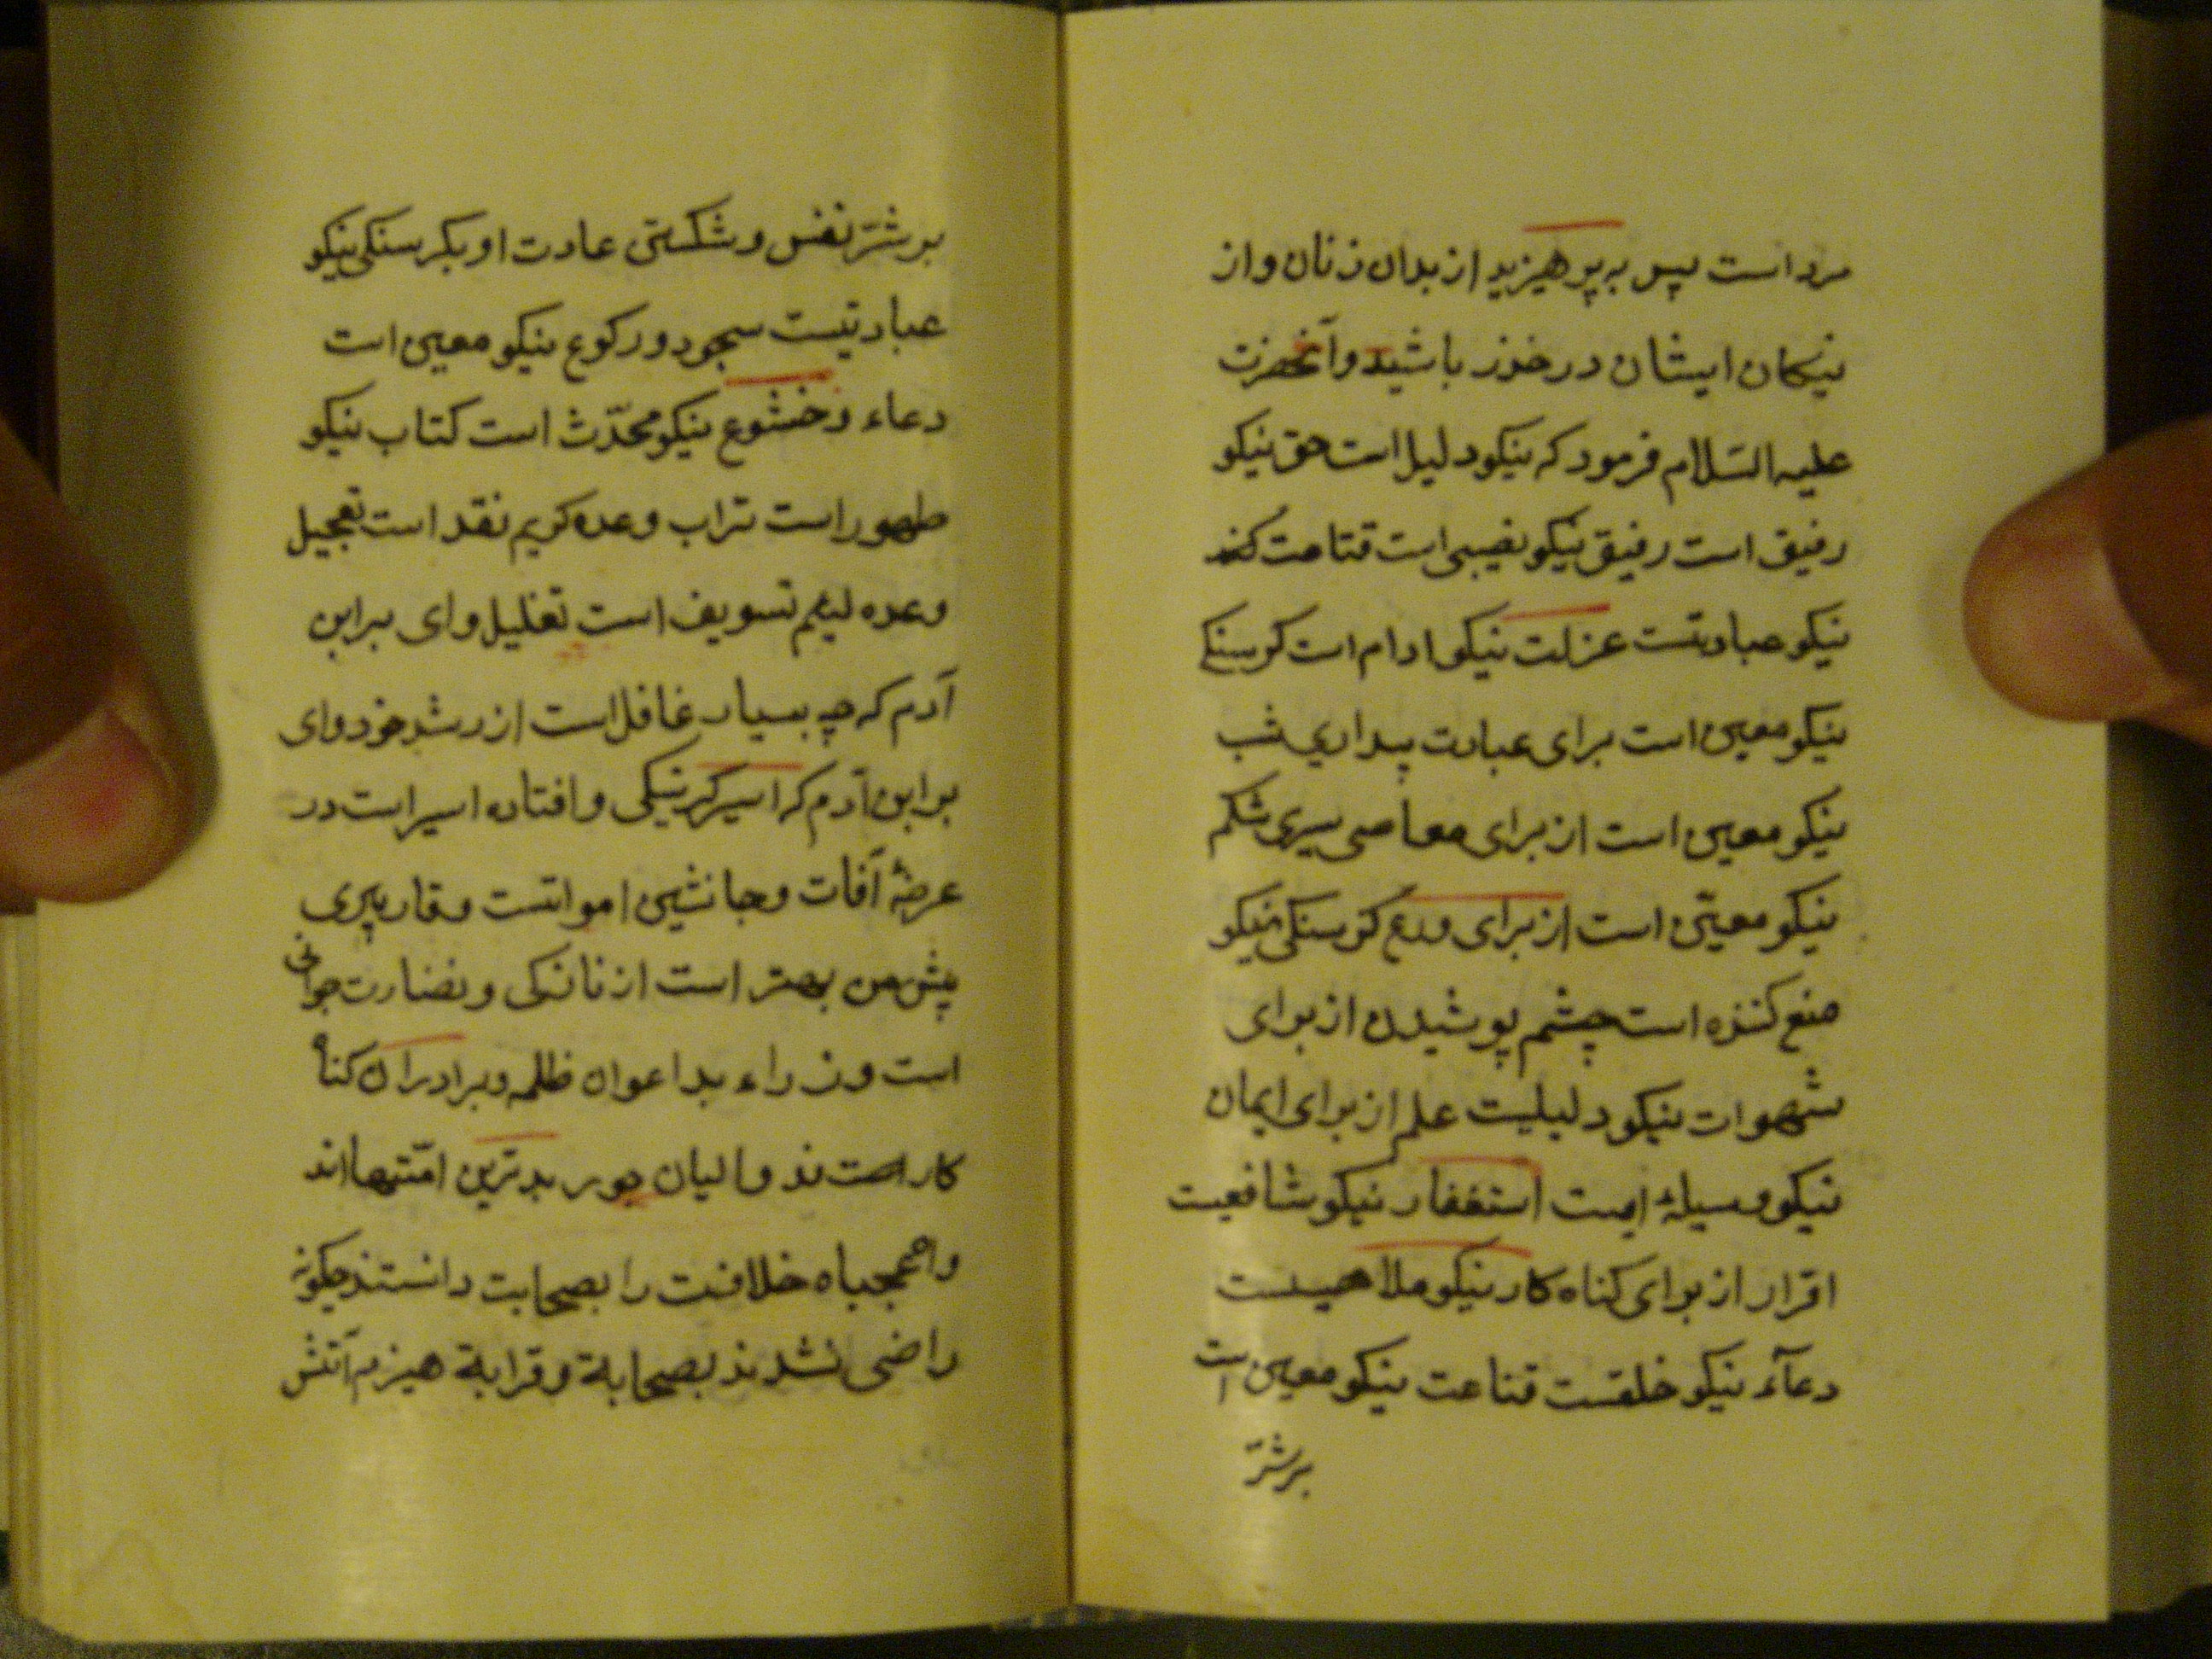 مرد است پس به پرهیزید از بدان زنان و از
نیکان ایشان در خوز باشید و آنحضرت
علیه السّلام فرمود که نیکو دلیل است حق نیکو
رفیق است رفیق نیکو نصیبی است قناعت کند
نیکو عبادتست عزلت نیکو ادام است کرسنکے
نیکو معین است برای عبادت بیداری شب
نیکو معین است از برای معاصی سیری شکم
نیکو معینی است از برای ورع کرسنکی نیکو
منع کننده است چشم پوشیدن از برای
شهوات نیکو دلیلیت علم از برای ایمان
نیکو وسیلهٔ ایست استغفار نیکو شافعیت
اقرار از برای کناه کار نیکو ملاحیست
دعآء نیکو خلقست قناعت نیکو معین است
برشرّ
بر شرّ نفس و شکستن عادت او بکرسنکی نیکو
عبادتیست سجود و رکوع نیکو معین است
دعاء و خشوع نیکو محدّث است کتاب نیکو
طهور است تراب وعده کریم نقد است تعجیل
وعده لیئم تسویف است تغلیل وای برابن
آدم که چه بسیار غافل است از رشد خود وای
برابن آدم که اسیر کرنیکی و افتاده اسیر است در
عرضهٔ آفات و جانشین امواتست وقار پیری
پیش من بهتر است از نانکی و نضارت جوانی
است وزراء بد اعوان ظلمه و برادران کناه
کار است ند والیان جور بدترین امّتها اند
واعجباه خلافت را بصحابت دانستند چکونه
راضی نشدند بصحابة و قرابة هیزم آتش